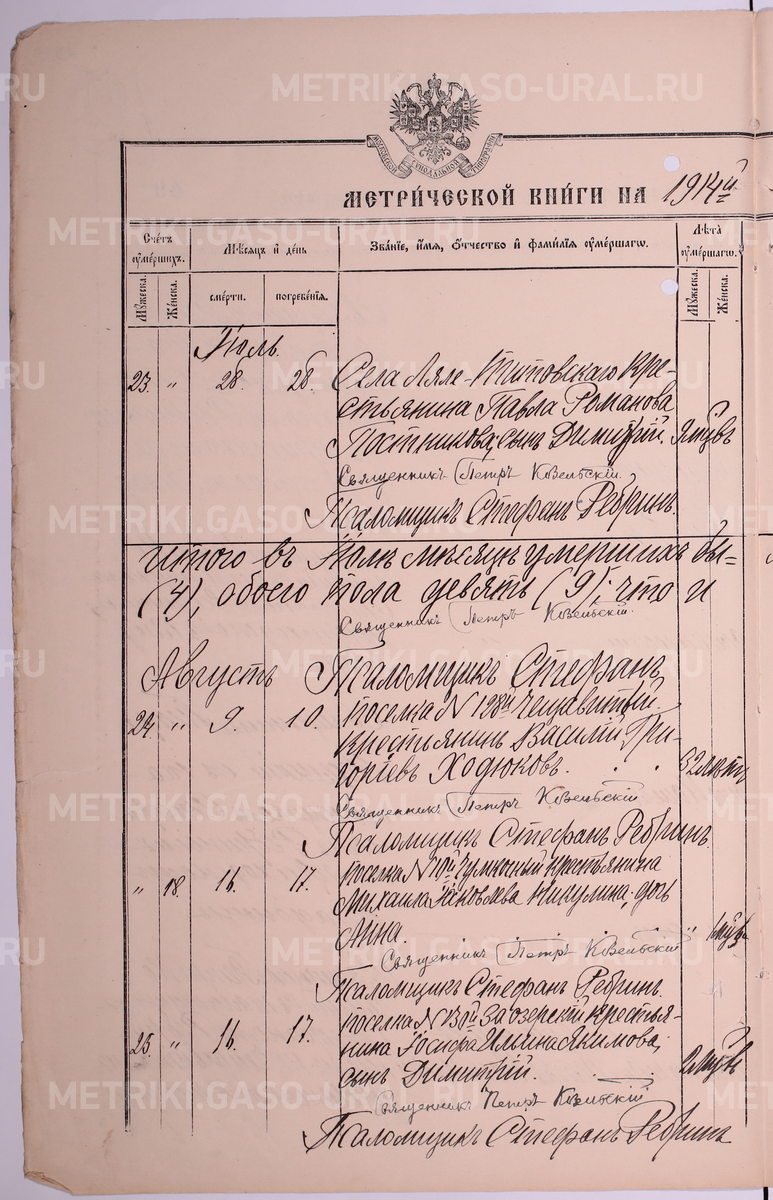 МОСКОВСКОЙ СѴНОДАЛЬНОЙ ТИПОГРАФІИ
МЕТРИ́ЧЕСКОЙ КНИ́ГИ НА 1914й
Сче́тъ ᲂу҆ме́ршихъ.
Мѣ́сяцъ и҆ день
Зва́нїе, и҆́мя, ѻ҆́тчество и҆ фами́лїя ᲂу҆ме́ршагѡ.
Лѣ́та ᲂу҆ме́ршагѡ.
Мꙋ́жеска.
Же́нска.
сме́рти.
погребе́нїя.
Мꙋ́жеска.
Же́нска.
Іюль.
23. „ 28. 28. Села Ляле-Титовскаго кре-
стьянина Павла Романова
Постникова, сынъ Димитрій.
Священникъ Петръ Козельскій.
Псаломщикъ Стефанъ Ребринъ.
Итого въ Іюлѣ мѣсяцѣ умершихъ бы-
(4), обоего пола девять (9); что и
Священникъ Петръ Козельскій.
Августъ Псаломщикъ Стефанъ
24. „ 9. 10. Поселка N 128й
Крестьянинъ Василій Гри-
горіевъ Ходюковъ. лѣтъ
Священникъ Петръ Козельскій
Псаломщикъ Стефанъ Ребринъ
„ 18. 16. 17. Поселка N крестьянина
Михаила Яковлева Никулина, дочь
Анна. „
Священникъ Петръ Козельскій
Псаломщикъ Стефанъ Ребринъ.
25. „ 16. 17. Поселка N 130й Заозерскій крестья-
нина Іосифа Ильина Якимова,
сынъ Димитрій.
Священникъ Петръ Козельскій
Псаломщикъ Стефанъ Ребринъ
METRIKI.GASO-URAL.RU